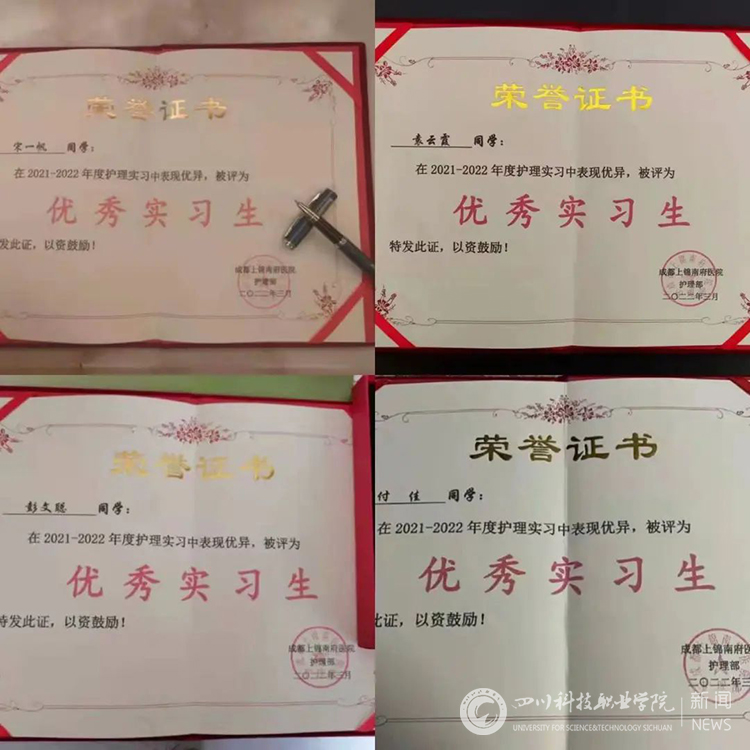 荣誉证书
宋一帆 同学:
在 2021-2022 年度护理实习中表现优异，被评为
优秀实习生
发此证，以资鼓励！
成都上锦南府医院
护理部
二〇二二年三月
荣誉证书
袁云霞 同学:
在 2021-2022 年度护理实习中表现优异，被评为
优秀实习生
特发此证，以资鼓励！
成都上锦南府医院
护理部
二〇二二年三月
荣誉证书
彭文聪 同学:
在 2021-2022 年度护理实习中表现优异，被评为
优秀实习生
特发此证，以资鼓励！
成都上锦南府医院
护理部
二〇二二年三月
荣誉证书
付 佳 同学:
在 2021-2022 年度护理实习中表现优异，被评为
优秀实习生
此证，以资鼓励！
成都上锦南府医
护理部
二〇二二年三
四川科技职业学院 新闻
UNIVERSITY FOR SCIENCE&TECHNOLOGY SICHUAN NEWS